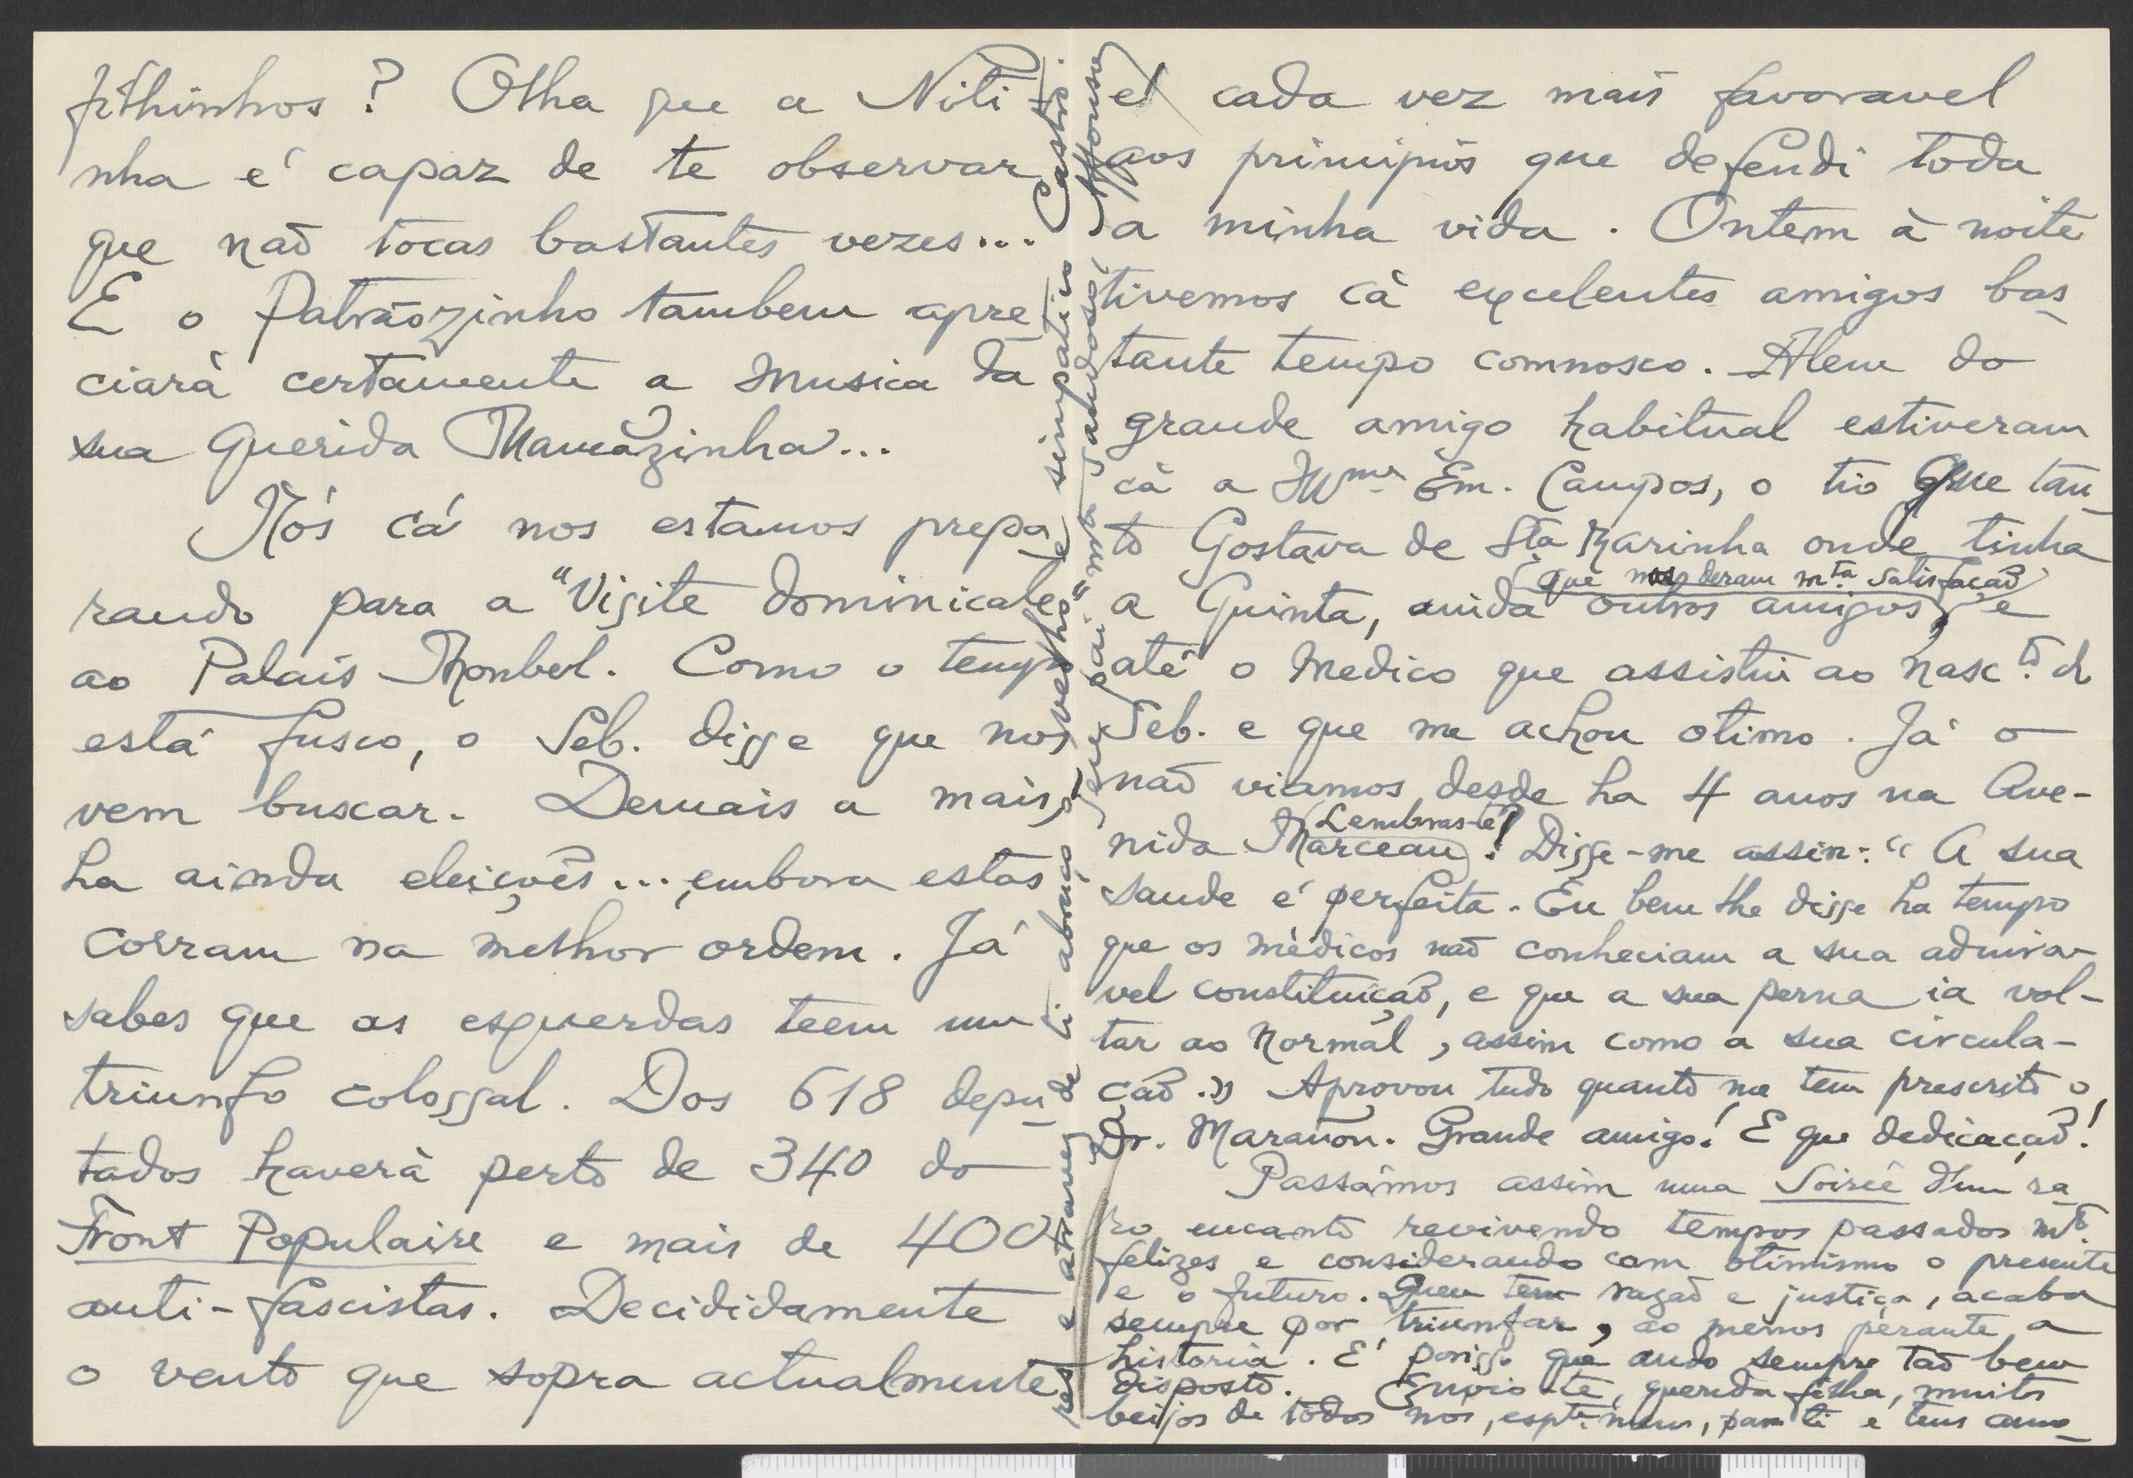 filhinhos? Olha que a Niti-
nha é capaz de te observar
que não tocas bastantes vezes...
E o Patrãozinho tambem apre-
ciará certamente a musica da
sua querida Mamãzinha...
Nós cá nos estamos prepa-
rando para a "Visite dominicale"
ao Palais Monbel. Como o tempo
está fusco, o Seb. disse que nos
vem buscar. Demais a mais,
ha ainda eleições... embora estas
corram na melhor ordem. Já
sabes que as esquerdas teem um
triunfo colossal. Dos 618 depu-
tados haverá perto de 340 do
Front Populaire e mais de 400
anti-fascistas. Decididamente
o vento que sopra actualmente
é cada vez mais favoravel
aos principios que defendi toda
a minha vida. Ontem à noite
tivemos cá excelentes amigos bas-
tante tempo comnosco. Alem do
grande amigo habitual estiveram
cá a Mme Em. Campos, o tio que tan-
to gostava de Sta Marinha onde tinha
a Quinta, ainda outros amigos, (que nos deram mta satisfação) e
até o medico que assistiu ao nascto. do
Seb. e que me achou otimo. Já o
não viamos desde ha 4 anos na Ave-
nida Marceau! (Lembras-te?) Disse-me assim: "A sua
saude é perfeita. Eu bem lhe disse ha tempo
que os médicos não conheciam a sua admira-
vel constituição, e que a sua perna ia vol-
tar ao normal, assim como a sua circula-
ção." Aprovou tudo quanto me tem prescrito o
Dr. Marañon. Grande amigo! E que dedicação!
Passámos assim uma Soirée d'um ra-
ro encanto revivendo tempos passados mto.
felizes e considerando com otimismo o presente
e o futuro. Quem tem razão e justiça, acaba
sempre por triunfar, ao menos perante a
historia. É porisso que ando sempre tão bem
disposto. Envio-te, querida filha, muitos
beijos de todos nós, espte. meus, para ti e teus amo-
res e atravez de ti abraço o "velho" e simpatico Castro.
Teu pai mto saudoso, Affonso